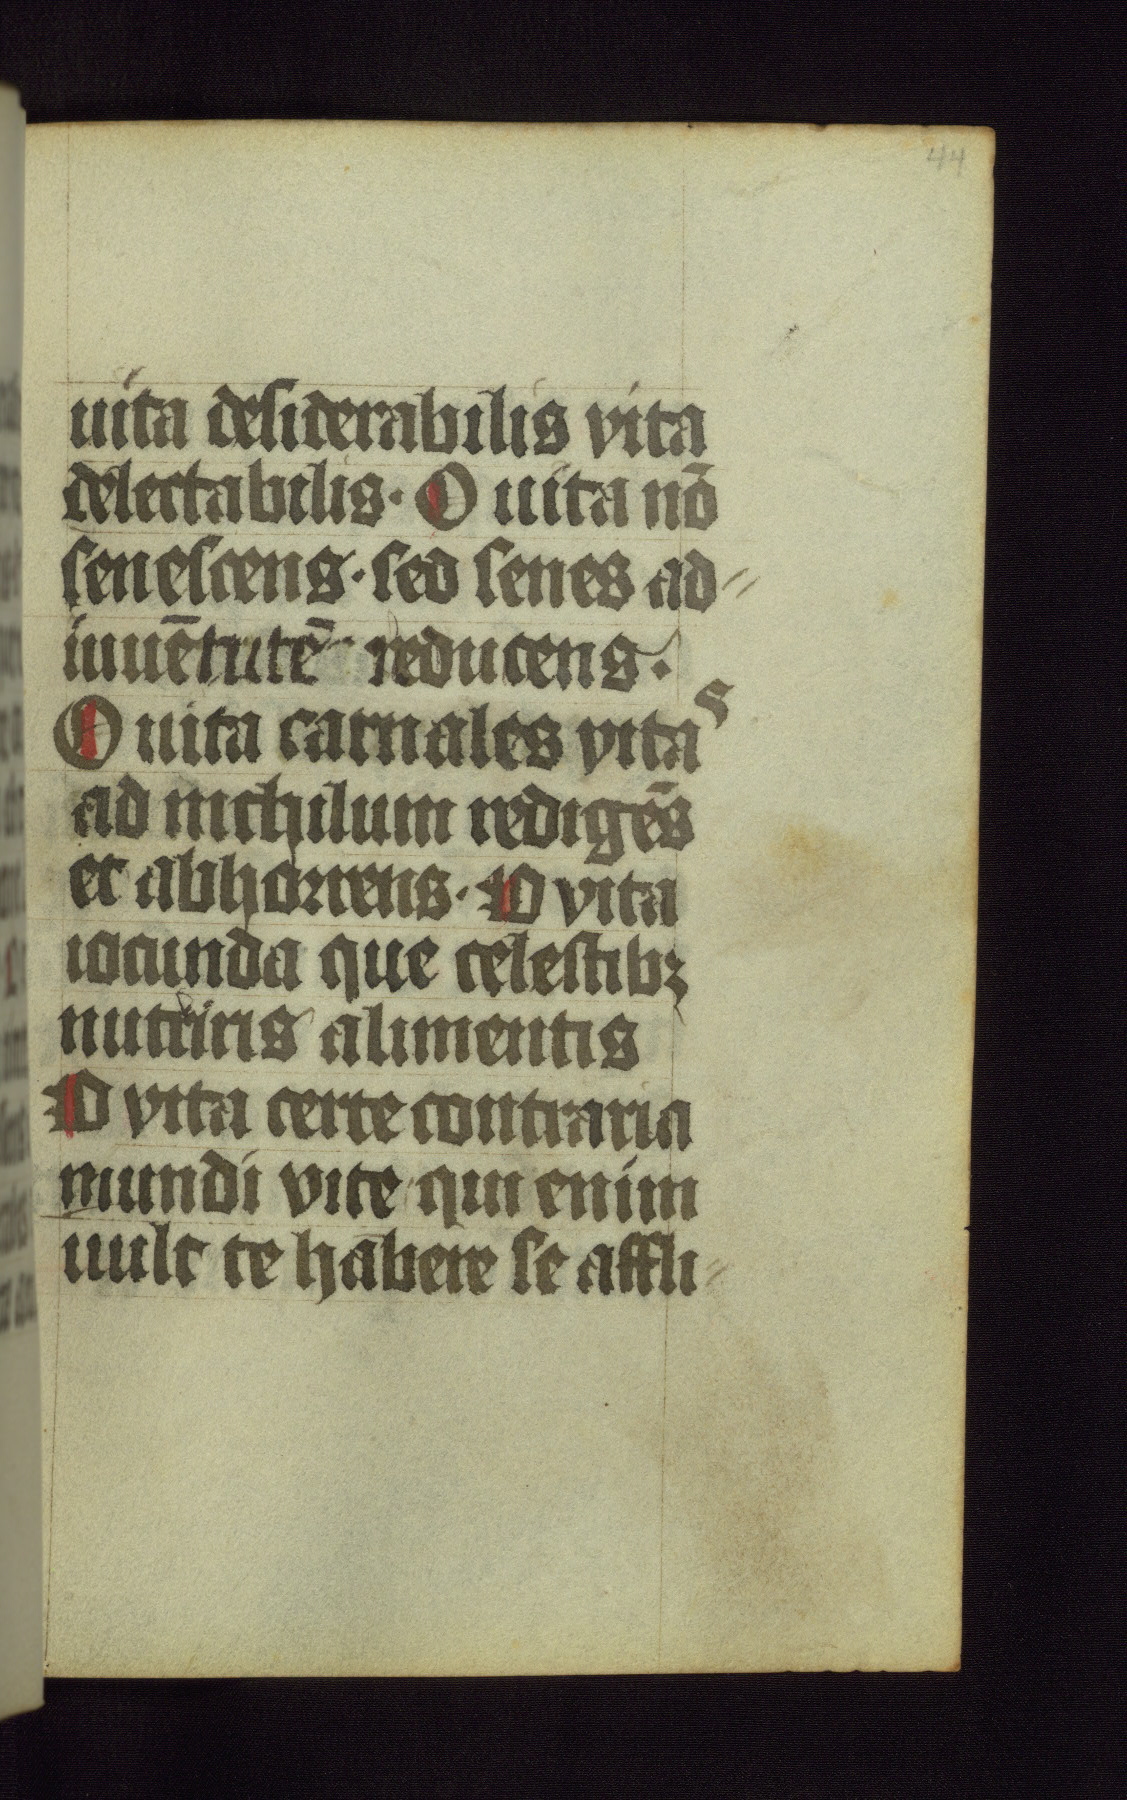 44
uita desiderabilis vita
delectabilis. O uita nō
senescens. sed senes ad
iuuētutē reducens.
O uita carnales vitas
ad nichilum redigēs
et abhorrens. O vita
iocunda que celestibꝫ
nutriris alimentis
O vita certe contraria
mundi vite qui enim
uult te habere se affli